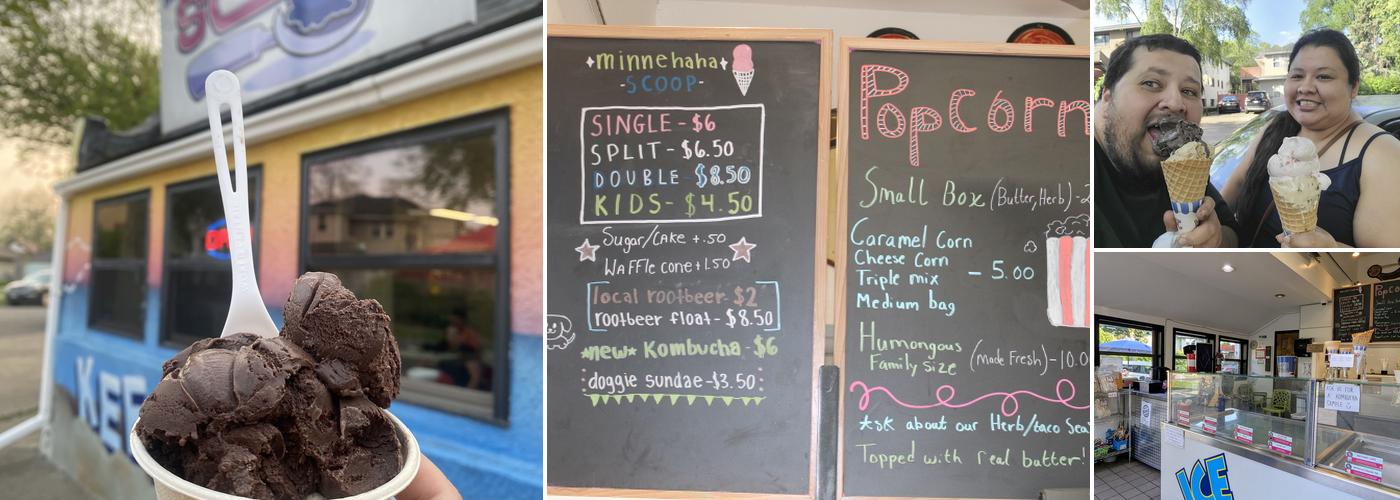 SC
OPEN
KEE
minnehaha
-SCOOP-
SINGLE - $6
SPLIT - $6.50
DOUBLE - $8.50
KIDS - $4.50
Sugar/Cake +.50
Waffle cone +1.50
local rootbeer - $2
rootbeer float - $8.50
*new* Kombucha - $6
doggie sundae - $3.50
PopCorn
Small Box (Butter, Herb) - 2
Caramel Corn
Cheese Corn
Triple mix - 5.00
Medium bag
Humongous
Family size (Made Fresh) - 10.0
*ask about our Herb/taco Sea
Topped with real butter!
PopCo
ASK US FOR
A KOMBUCHA
SAMPLE
ICE